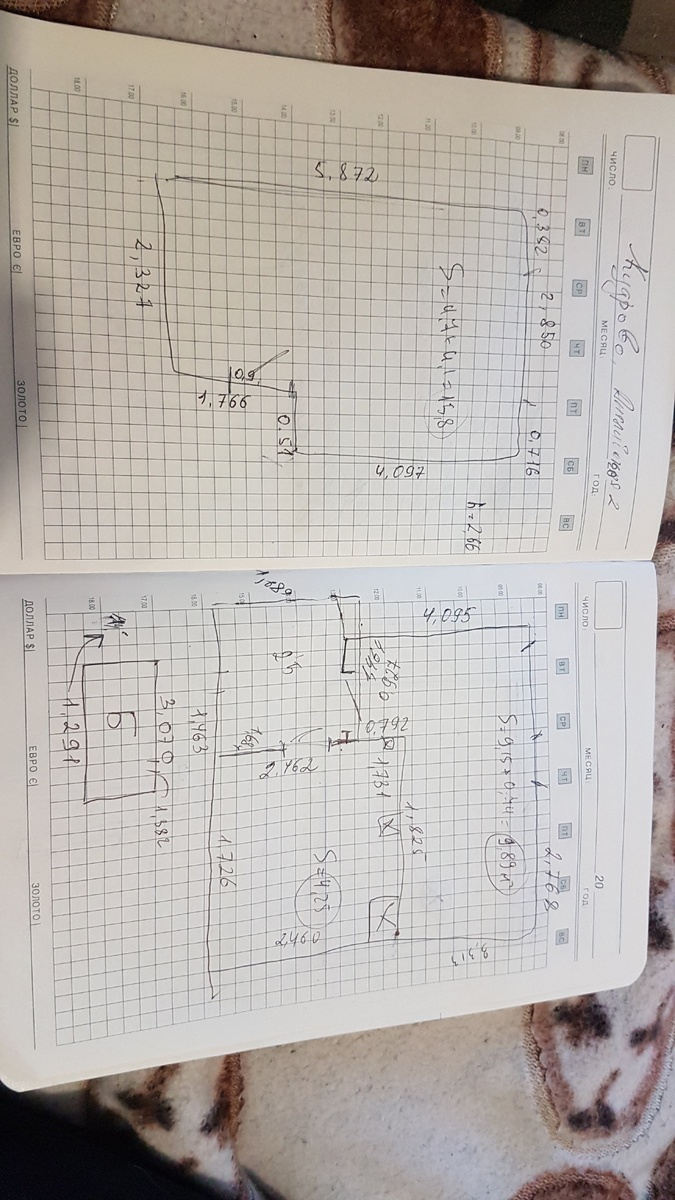 ЧИСЛО:
МЕСЯЦ:
ГОД:
Кудрово,
2
ПН
ВТ
СР
ЧТ
ПТ
СБ
ВС
08.00
09.00
10.00
11.00
12.00
13.00
14.00
15.00
16.00
17.00
18.00
0,382
2,850
0,716
h=2,66
5,872
4,097
0.51
0,9
1,766
2,321
ДОЛЛАР $|
ЕВРО €|
ЗОЛОТО|
ЧИСЛО
МЕСЯЦ
20
ГОД
ПН
ВТ
СР
ЧТ
ПТ
СБ
ВС
08.00
09.00
10.00
11.00
12.00
15.00
16.00
17.00
18.00
2,768
4,095
3,313
0,792
1731
1,825
2,462
S=4,25
2,460
1,463
1,726
3,070
1,382
Б
1,291
ДОЛЛАР $|
ЕВРО €|
ЗОЛОТО|